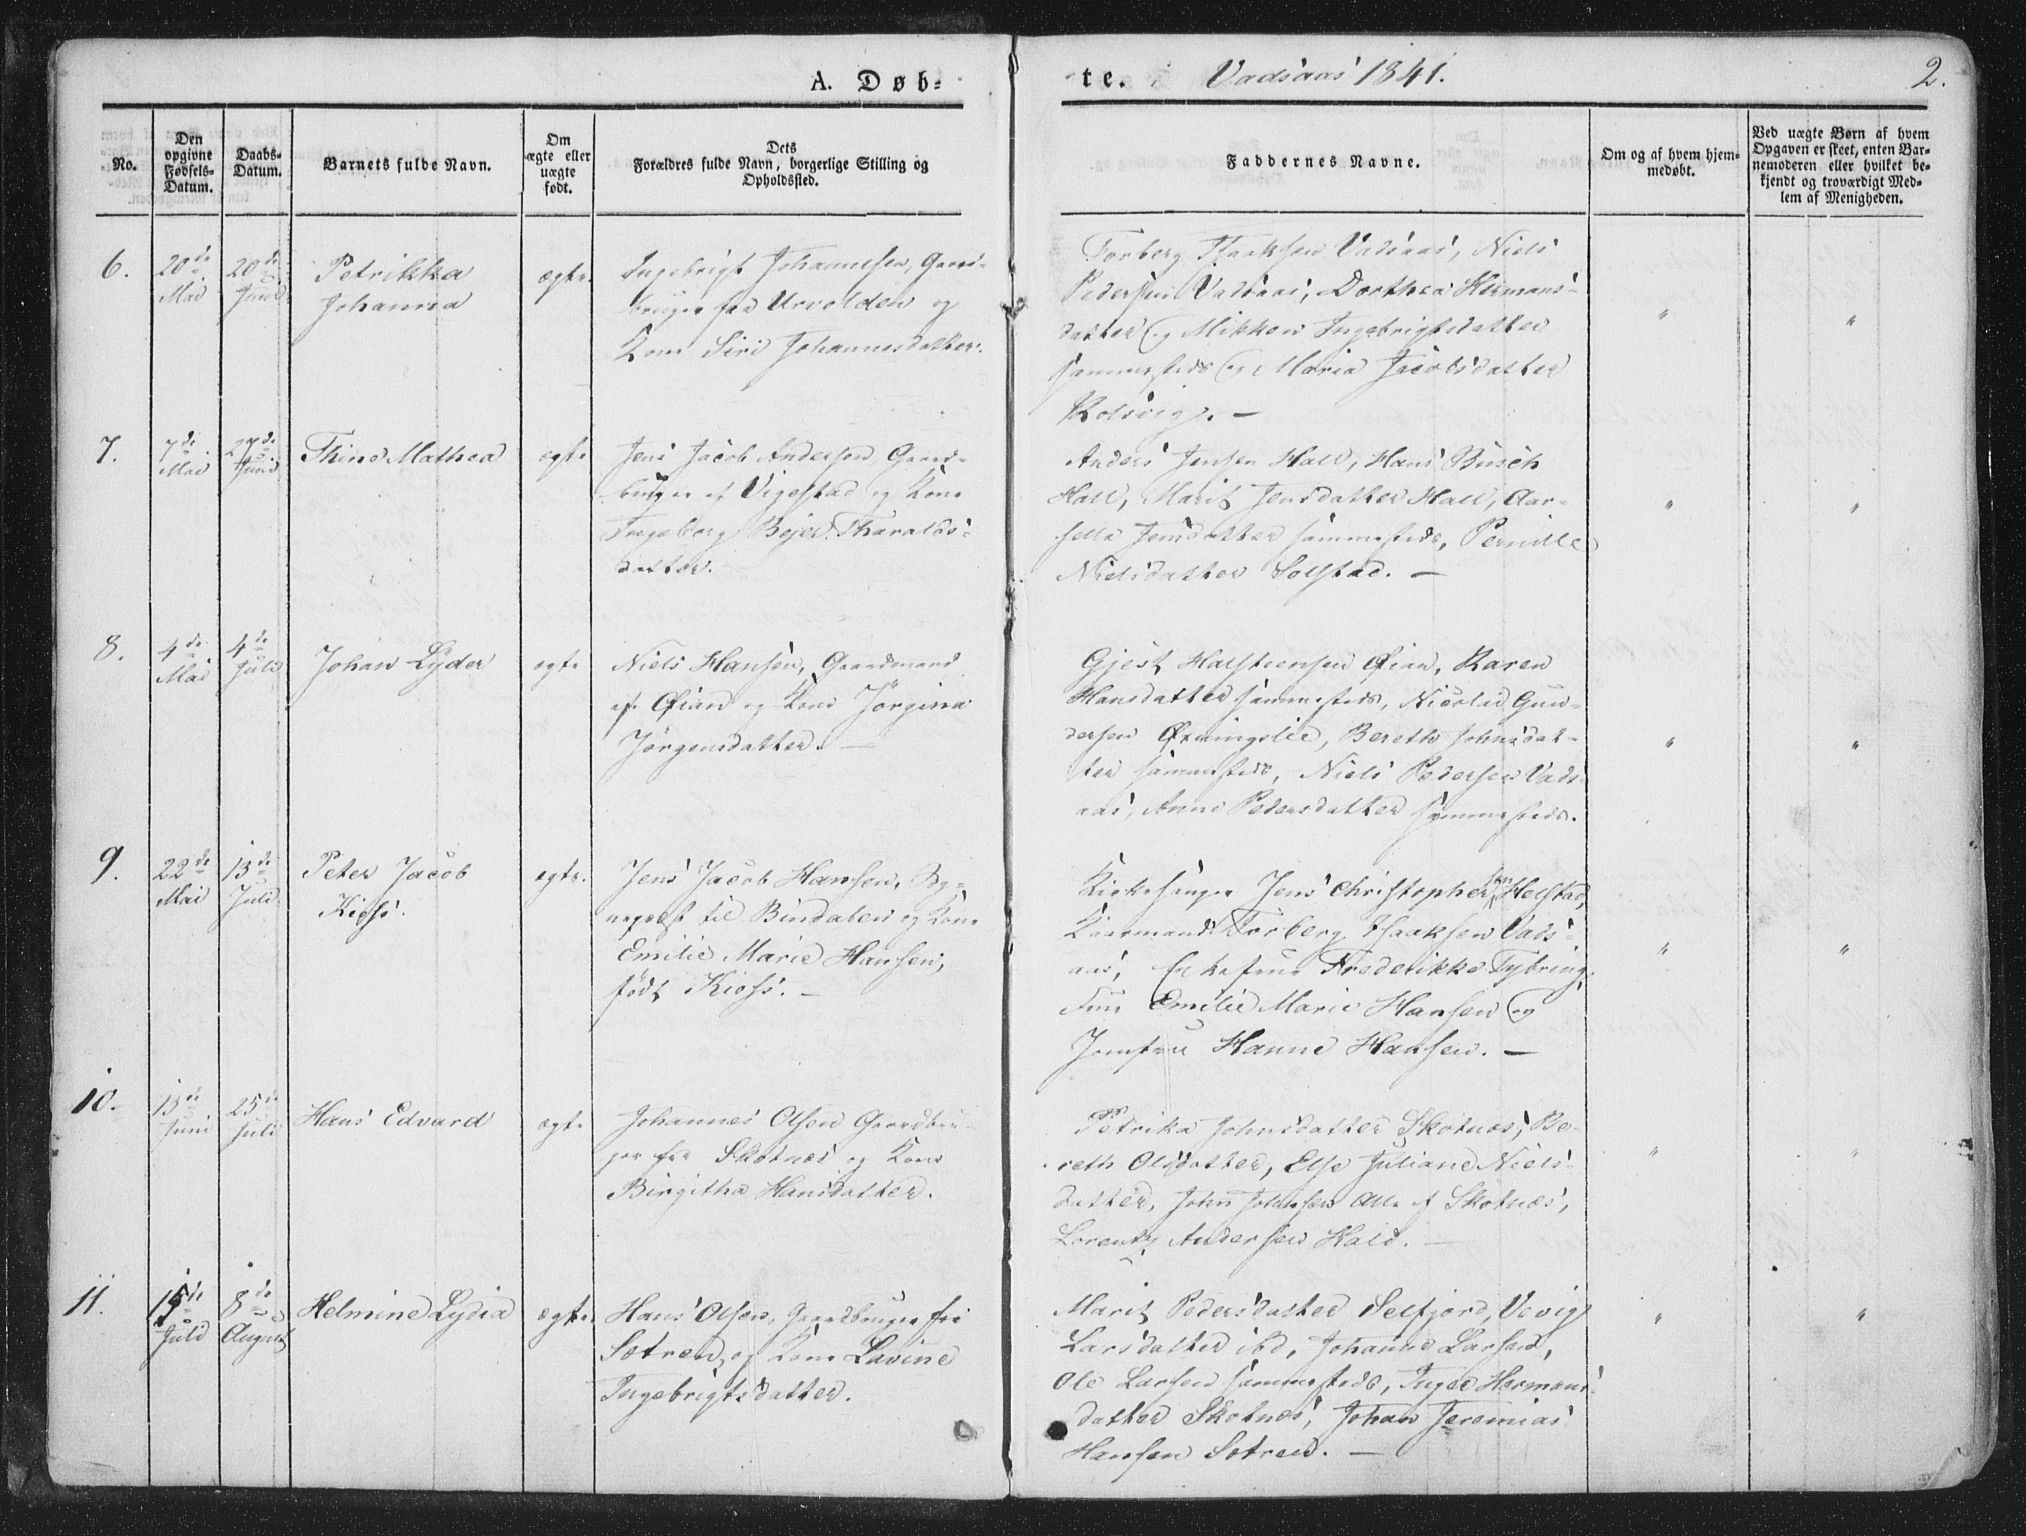 A. Døb=
te. i Vadsaas 1841. 2.
No.
Den opgivne Fødsels-Datum.
Daabs-Datum.
Barnets fulde Navn.
Om ægte eller uægte født.
Dets Forældres fulde Navn, borgerlige Stilling og Opholdssted.
Faddernes Navne.
Om og af hvem hjem-medøbt.
Ved uægte Børn af hvem Opgaven er skeet, enten Bar-nemoderen eller hvilket be-kjendt og troværdigt Med-lem af Menigheden.
6. 20de Mai 20de Juni
Petrikka
Johanna
ægte.
Ingebrigt Johannesen, Gaard-
bruger fra Urvolden og
Kone Siri Johannesdatter.
Torberg Isaksen Vadsaas, Niels
Pedersen Vadsaas, Dorthea Hermans-
datter og Mikken Ingebrigtsdatter
sammesteds og Maria Jacobsdatter
Kolsvig. —
" "
7. 7de Mai 27de Juni
Thine Mathea
ægte
Jens Jacob Andersen Gaard-
bruger af Vigestad og Kone
Ingeborg Bejer Tharalds-
datter.
Anders Jensen Hall, Hans Busch
Hall, Marit Jensdatter Hall, Aar-
selle Jensdatter sammesteds, Pernille
Nielsdatter Solstad. —
" "
8. 4de Mai 4de Juli
Johan Lyder
ægte
Niels Hansen, Gaardmand
af Øian og Kone Jörgina
Jørgensdatter. —
Gjest Halsteensen Øian, Karen
Hansdatter sammesteds, Nicolai Gun-
dersen Øxningslie, Bereth Johnsdat-
ter sammesteds, Niels Pedersen Vads-
aas, Anne Pedersdatter sammesteds.
" "
9. 22de Mai 13de Juli
Peter Jacob
Kiess.
ægte.
Jens Jacob Hansen, Sog-
nepræst til Bindalen og Kone
Emilie Marie Hansen,
født Kiess. —
Kirkesanger Jens Christophersen Helstad,
Kaarmand Torberg Isaksen Vads-
aas, Enkefrue Frederikke Tybring,
Frue Emilie Marie Hansen og
Jomfrue Hanne Hansen. —
" "
10. 13de Juni 25de Juli
Hans Edvard
ægte
Johannes Olsen Gaardbru-
ger fra Skotnes og Kone
Birgitha Hansdatter.
Petrika Johnsdatter Skotnæs, Be-
reth Olsdatter, Else Juliane Niels-
datter, John Johnsen Alle af Skotnæs,
Lorentz Andersen Hald. —
" "
11. 15de Juli 8de August
Helmine Lydia
ægte.
Hans Olsen, Gaardbruger fra
Sætren, og Kone Lavine
Ingebrigtsdatter.
Marit Pedersdatter Selfjord, Vevig
Larsdatter ibd, Johanne Larsen,
Ole Larsen sammesteds, Inger Hermans-
datter Skotnes, Johan Jeremias
Hansen Sætren. —
" "